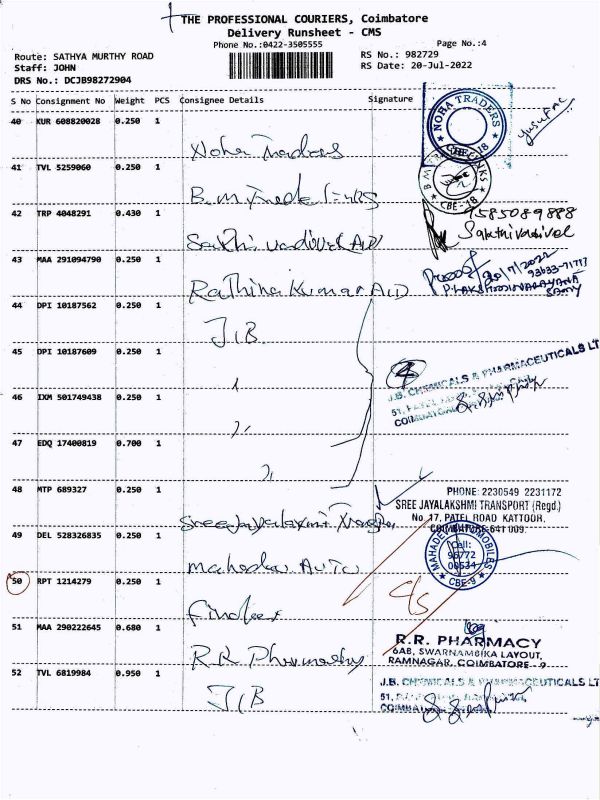 THE PROFESSIONAL COURIERS, Coimbatore
Delivery Runsheet - CMS
Phone No.:0422-3505555
Page No.:4
Route: SATHYA MURTHY ROAD
RS No.: 982729
Staff: JOHN
RS Date: 20-Jul-2022
DRS No.: DCJB98272904
S No Consignment No Weight PCS Consignee Details Signature
40 KUR 608820028 0.250 1
Noha Traders
NOHA TRADERS
CBE-18
41 TVL 5259060 0.250 1
B.M.
CBE-18
42 TRP 4048291 0.430 1
Sakthi vadivel A/D
9585089888
Sakthivadivel
43 MAA 291094790 0.250 1
Rathina Kumar A/D
20/7/2022
93633-71717
44 DPI 10187562 0.250 1
J.B.
45 DPI 10187609 0.250 1
J.B. CHEMICALS & PHARMACEUTICALS LT
51, PATEL
COIMBATORE
46 IXM 501749438 0.250 1
47 EDQ 17400819 0.700 1
48 MTP 689327 0.250 1
Sree Jayalaxmi
PHONE: 2230549 2231172
SREE JAYALAKSHMI TRANSPORT (Regd.)
No 17, PATEL ROAD KATTOOR,
COIMBATORE-641 009.
49 DEL 528326835 0.250 1
Mahadev Auto
Cell:
CBE-9
50 RPT 1214279 0.250 1
51 MAA 290222645 0.680 1
R.R Pharmacy
R.R. PHARMACY
6AB, SWARNAMBIKA LAYOUT,
RAMNAGAR, COIMBATORE - 9
52 TVL 6819984 0.950 1
J.B
J.B. CHEMICALS & PHARMACEUTICALS LT
51,